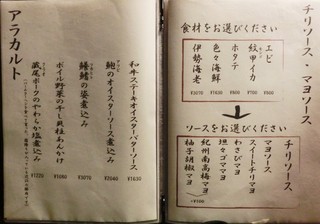 チリソース・マヨソース
食材をお選びください
エビ ¥600
紋甲イカ ¥900
ホタテ ¥700
色々海鮮 ¥1630
伊勢海老 ¥3070
ソースをお選びください
チリソース
マヨソース
スイートチリマヨ
わさびマヨ
坦々ゴママヨ
紀州南高梅マヨ
柚子胡椒マヨ
アラカルト
和牛ステーキオイスターバターソース ¥1630
鮑のオイスターソース煮込み ¥2040
鱶鰭の姿煮込み ¥3070
ボイル野菜の干し貝柱あんかけ ¥1080
蔵尾ポークのやわらか塩煮込み ¥1220